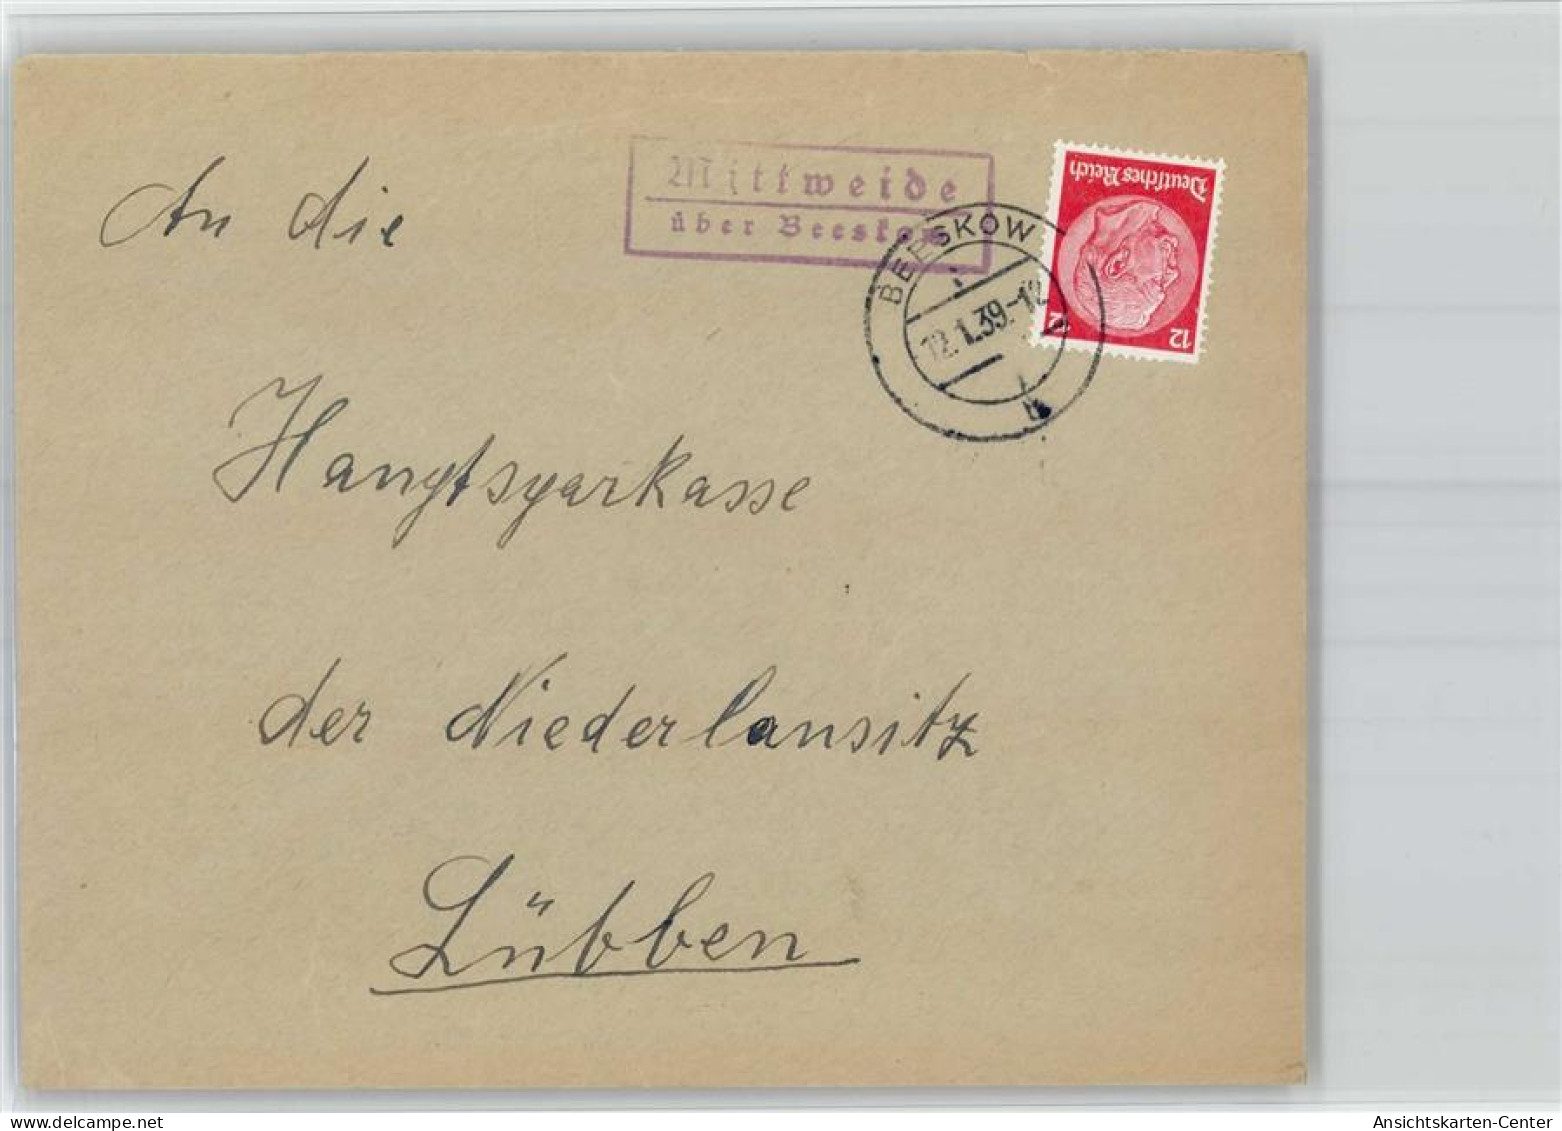 Mittweide
über Beeskow
BEESKOW
12.1.39.-12
Deutsches Reich
12
12
An die
Hauptsparkasse
der Niederlausitz
Lübben
delcampe.net
Ansichtskarten-Center